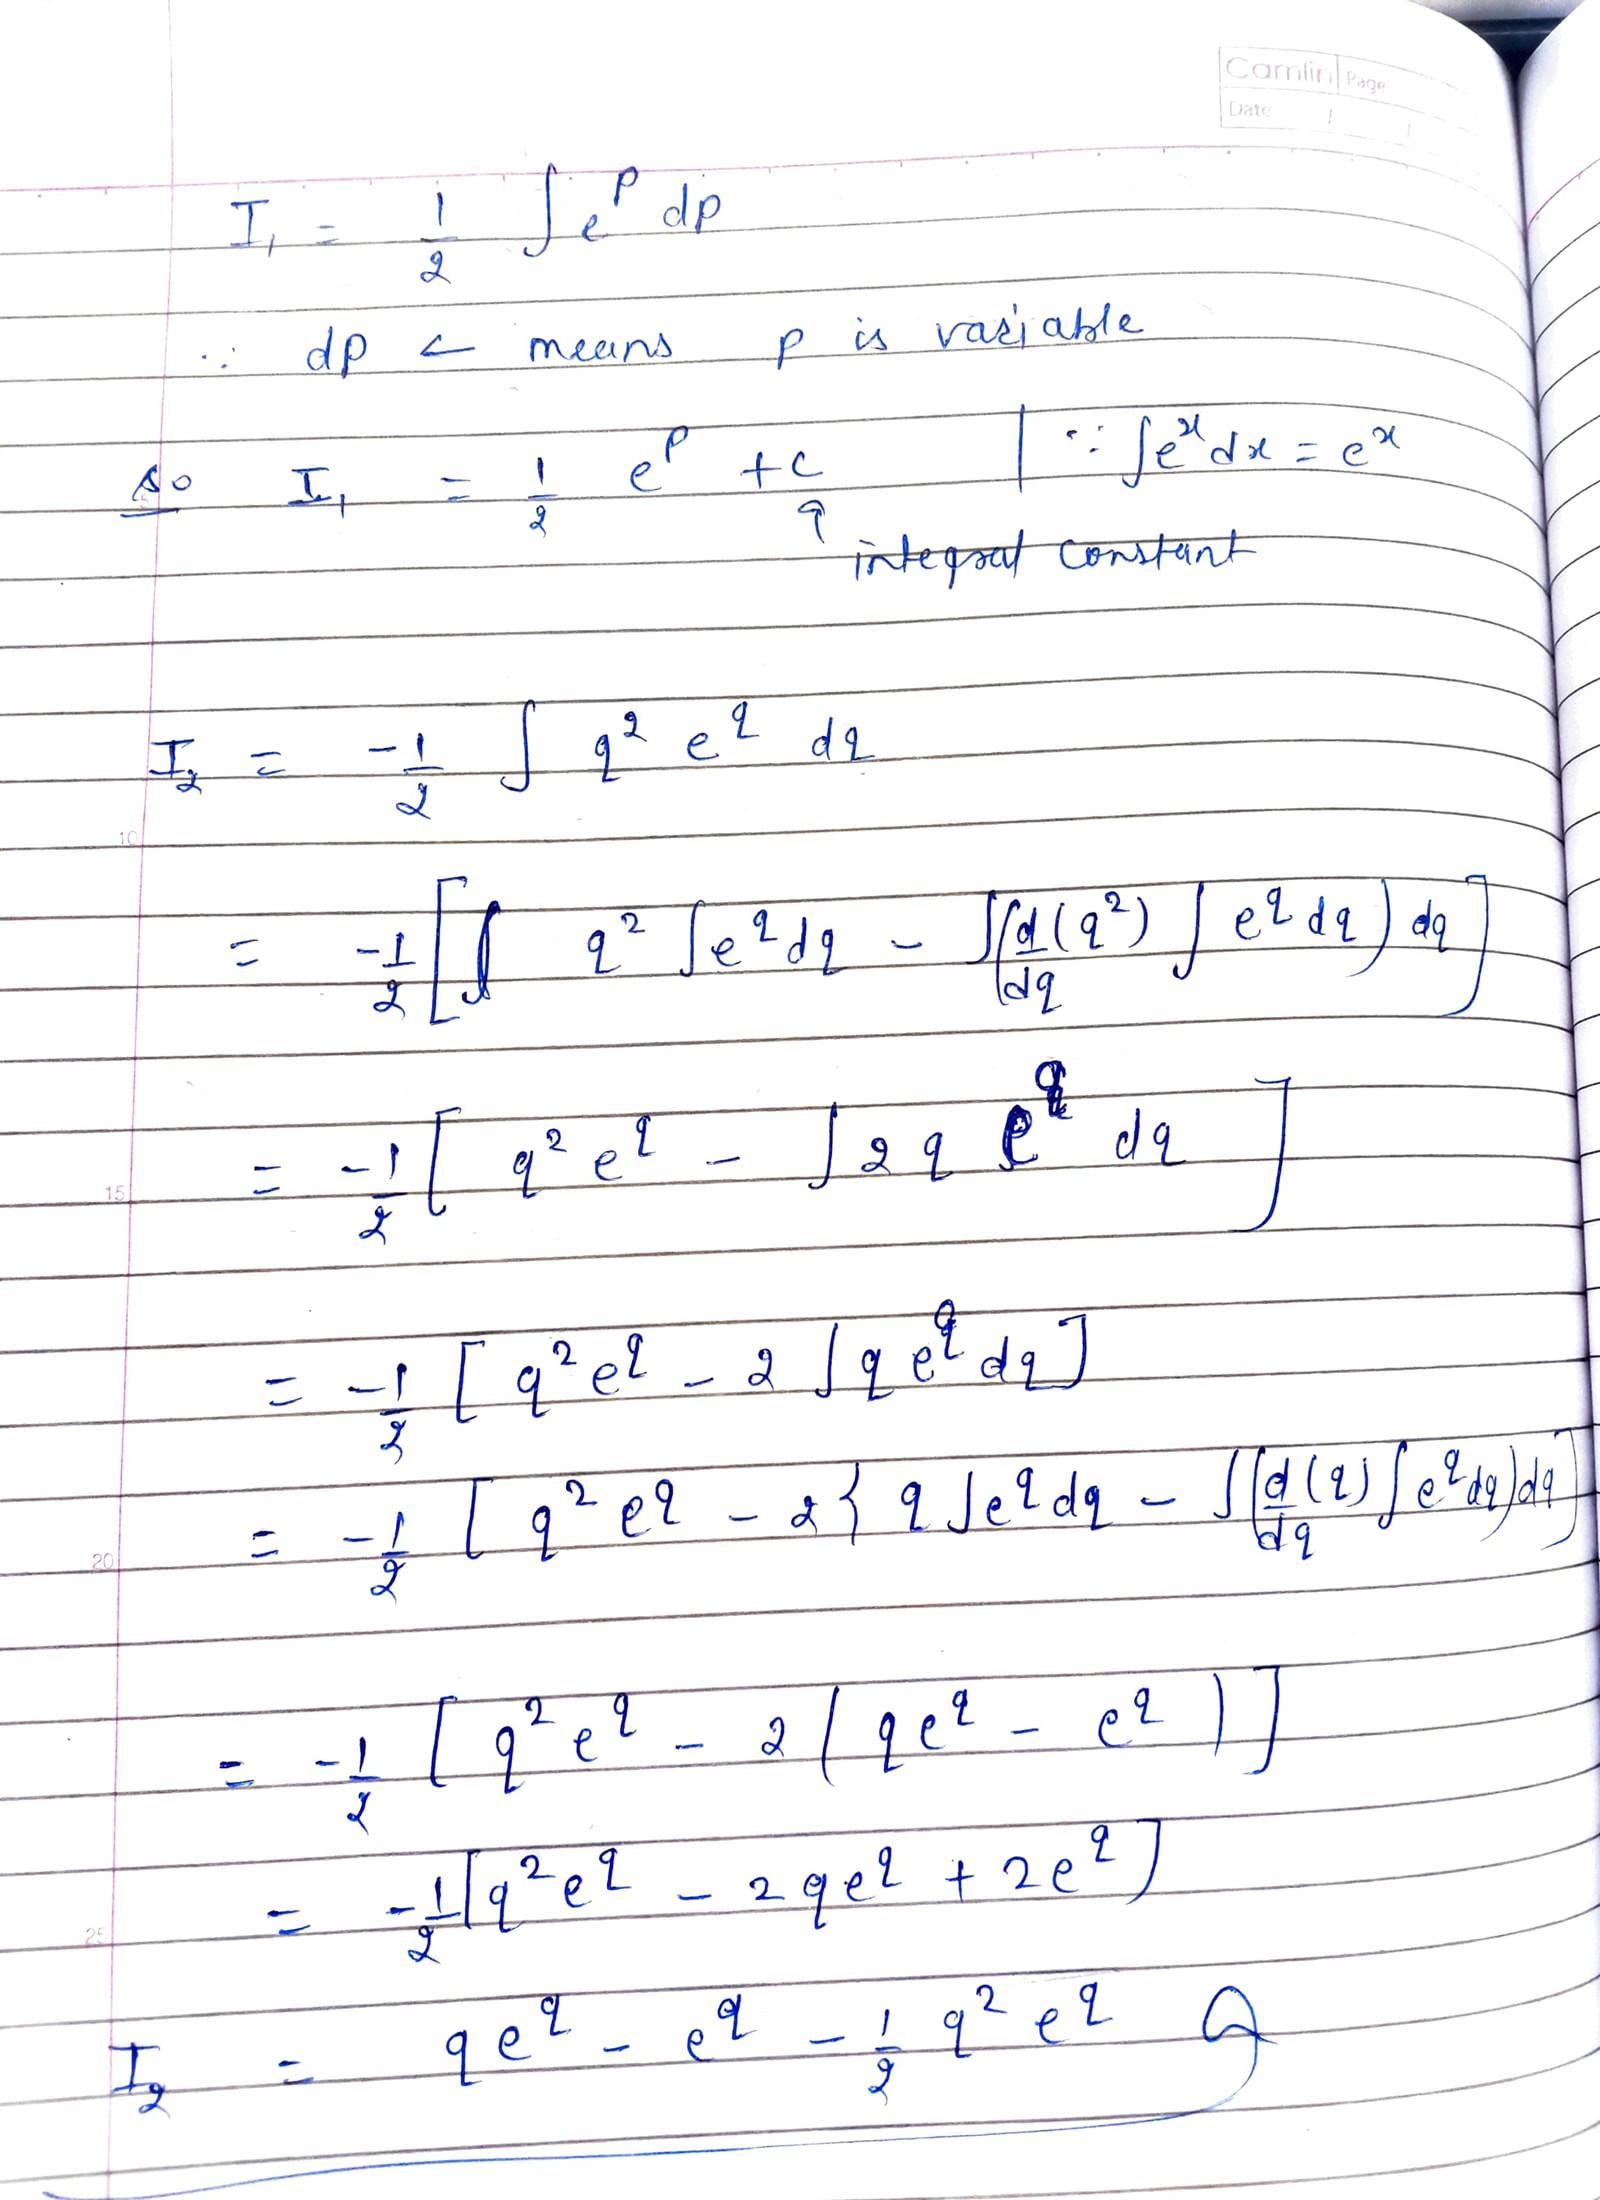 Camlin Page
Date / /
I₁ = 1/2 ∫ e^p dp
∵ dp ← means p is variable
so I₁ = 1/2 e^p + c | ∵ ∫e^x dx = e^x
integral constant
I₂ = -1/2 ∫ q² e^q dq
10
= -1/2 [ q² ∫e^q dq - ∫(d/dq (q²) ∫ e^q dq) dq ]
= -1/2 [ q² e^q - ∫ 2 q e^q dq ]
15
= -1/2 [ q² e^q - 2 ∫ q e^q dq ]
= -1/2 [ q² e^q - 2 { q ∫e^q dq - ∫(d/dq (q) ∫ e^q dq) dq ]
20
= -1/2 [ q² e^q - 2 ( q e^q - e^q ) ]
= -1/2 [ q² e^q - 2 q e^q + 2 e^q ]
25
I₂ = q e^q - e^q - 1/2 q² e^q